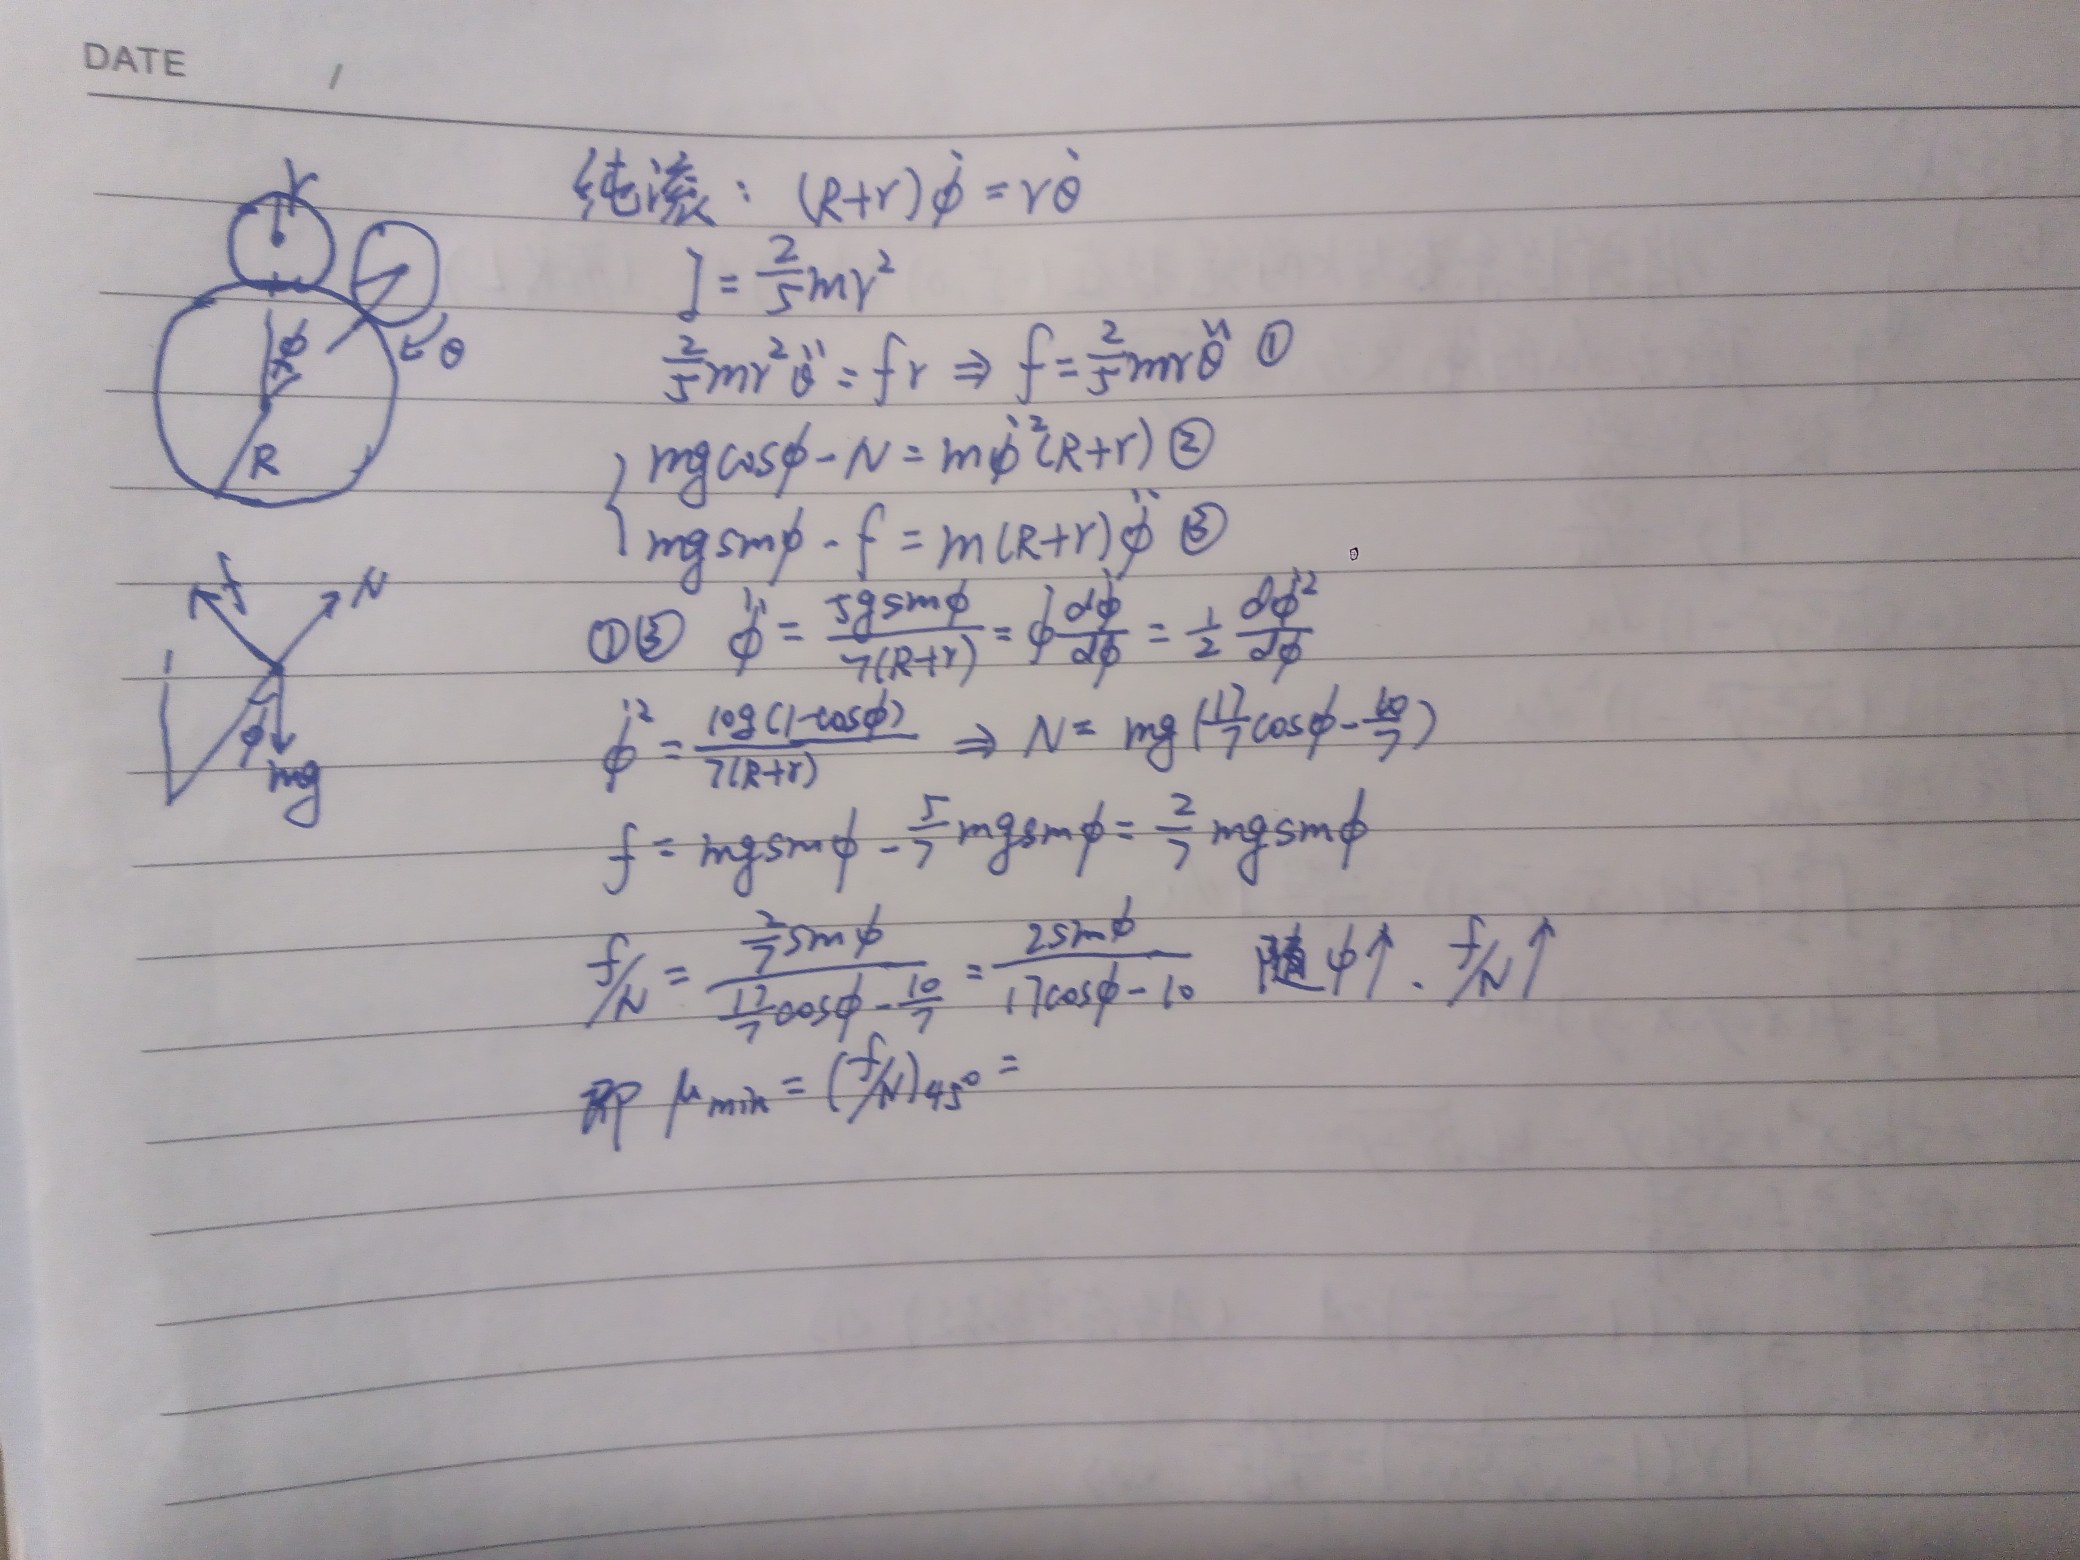 DATE /
纯滚: (R+r)φ̇ = rθ̇
J = 2/5 mr²
2/5 mr²θ̈ = fr ⇒ f = 2/5 mrθ̈ ①
mgcosφ - N = mφ̇²(R+r) ②
mgsinφ - f = m(R+r)φ̈ ③
①③ φ̈ = 5gsinφ / 7(R+r) = φ̇ dφ̇/dφ = 1/2 dφ̇²/dφ
φ̇² = 10g(1-cosφ) / 7(R+r) ⇒ N = mg(17/7 cosφ - 10/7)
f = mgsinφ - 5/7 mgsinφ = 2/7 mgsinφ
f/N = 2/7 sinφ / (17/7 cosφ - 10/7) = 2sinφ / (17cosφ - 10) 随φ↑. f/N↑
即 μmin = (f/N)45° =
r
φ
θ
R
f N
φ
mg